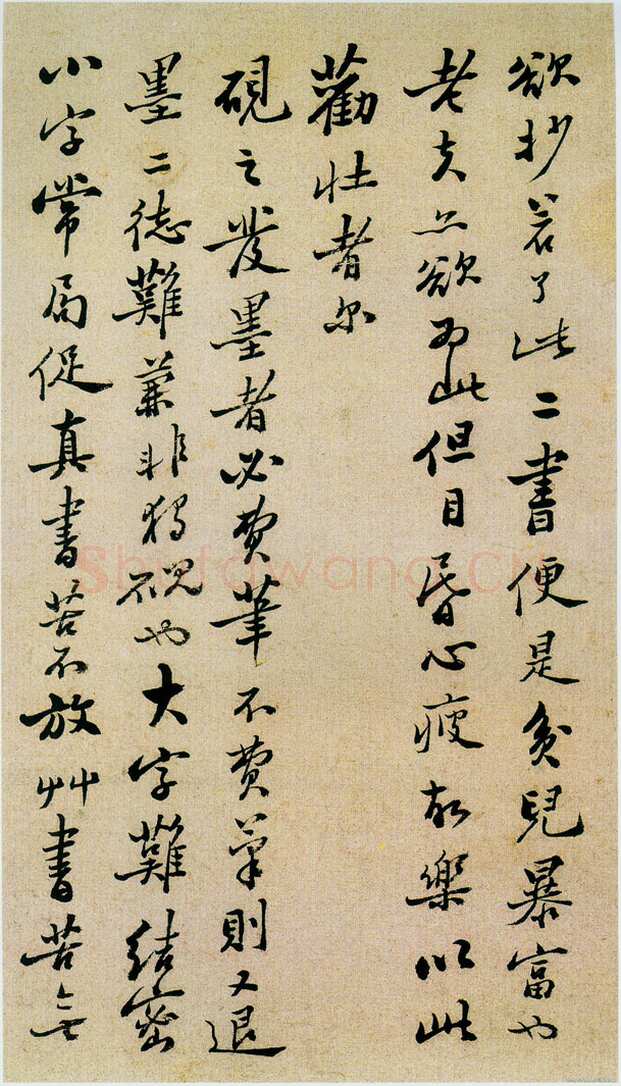 欲抄若了此二書便是貧兒暴富也
老夫亦欲為此但目昏心疲故樂以此
勸壯者爾
硯之發墨者必費筆不費筆則又退
墨二德難兼非獨硯也大字難結密
小字常局促真書苦不放艸書苦無
Shufawang.CN